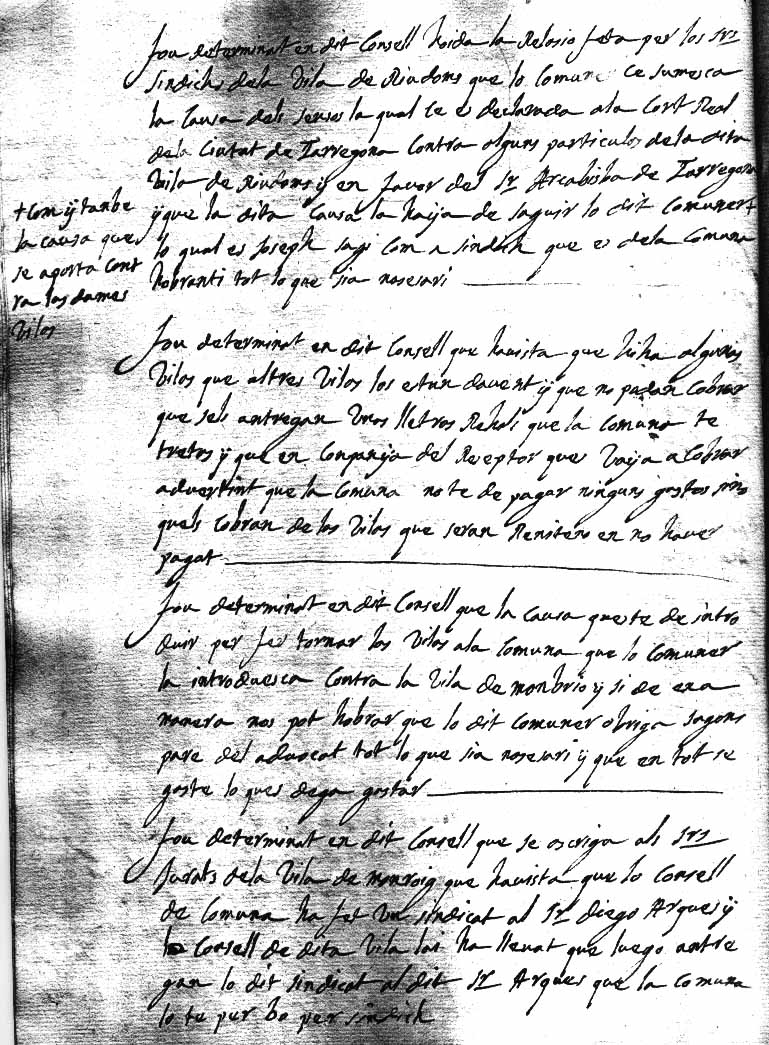 fou determinat en dit Consell hoida la Relasio feta per los Srs
sindichs dela Vila de Riudoms que lo Comune ce sumesca
la Causa dels senses la qual ce es declarada ala Cort Real
dela Ciutat de Tarregona Contra alguns particulos dela dita
Vila de Riudoms y en favor del Sr Arcabisba de Tarregona
ÿ que la dita Causa la haija de saguir lo dit Comuner +
lo qual es Joseph sagi Com a sindich que es dela Comuna
hobranti tot lo que sia nosesari
+ Com ÿ tanbe
la causa que
se aporta Cont
ra las dames
Vilas
fou determinat en dit Consell que hauista que hiha algunas
Vilas que altres Vilas los estan davent ÿ que no padan Cobrar
que sels antregan Unas lletras Rehals que la Comuna te
tretas ÿ que en Conpanÿa del Reseptor ques Vaija a Cobrar
advertint que la Comuna no te de pagar ninguns gastos sino
quels Cobran de los Vilas que seran Renitens en no haver
pagat
fou determinat en dit Consell que la Causa queste de intro
duir per fer tornar las Vilas ala Comuna que lo Comuner
la introduesca Contra la Vila de monbrio ÿ si de exa
manera nos pot hobrar que lo dit Comuner obriga sagons
pare del advocat tot lo que sia nosesari ÿ que en tot se
gaste lo ques dega gastar
fou determinat en dit Consell que se oscriga als Srs
Jurats dela Vila de monroig que hauista que lo Consell
de Comuna ha fet Un sindicat al Sr diego Argues ÿ
lo Consell de dita Vila lai ha lleuat que luego antre
gan lo dit sindicat al dit Sr Argues que la Comuna
lo te per bo per sindich